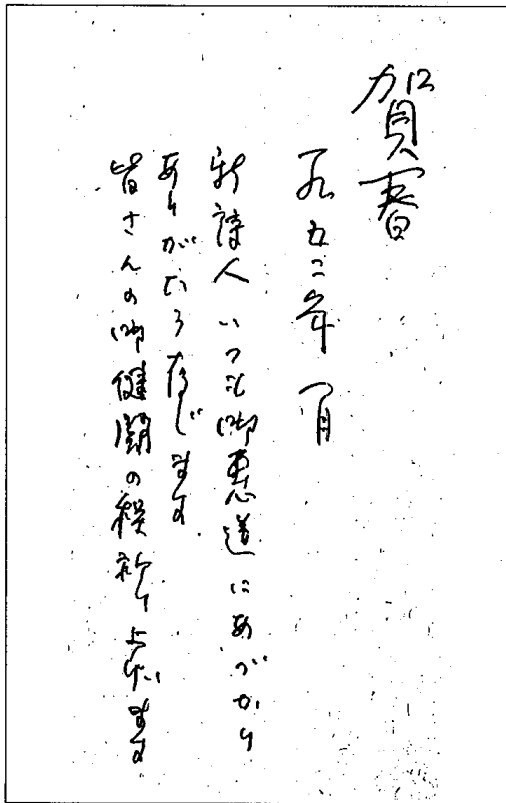 賀春
一九五二年一月
新詩人いつも御恵送にあづかり
ありがたう存じます
皆さんの御健闘の程祈り上げます